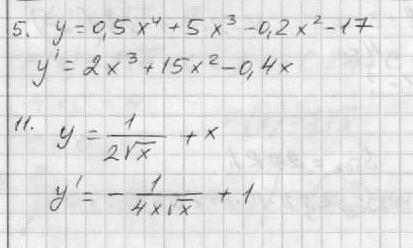 5. y = 0,5x⁴ + 5x³ - 0,2x² - 17
y' = 2x³ + 15x² - 0,4x
11. y = 1/(2√x) + x
y' = - 1/(4x√x) + 1